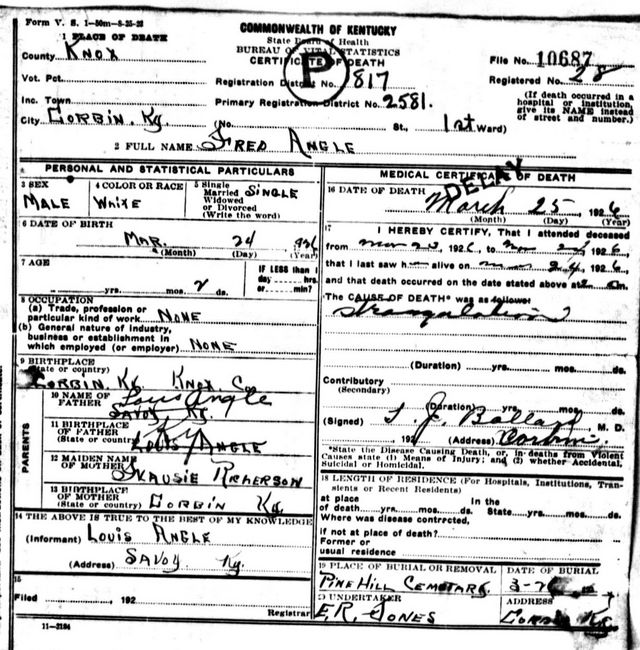 Form V. S. 1-50m-8-25-25
COMMONWEALTH OF KENTUCKY
State Board of Health
BUREAU OF VITAL STATISTICS
CERTIFICATE OF DEATH
P
1 PLACE OF DEATH
County Knox
File No. 10687
Vot. Pct.
Registration District No. 817
Registered No. 28
Inc. Town
Primary Registration District No. 2581.
(If death occurred in a hospital or institution, give its NAME instead of street and number.)
City Corbin, Ky. (No. St., 1st Ward)
2 FULL NAME Fred Angle
PERSONAL AND STATISTICAL PARTICULARS
3 SEX Male
4 COLOR OR RACE White
5 Single Married Widowed or Divorced (Write the word) Single
6 DATE OF BIRTH
Mar. 24
(Month) (Day) (Year)
7 AGE
yrs. mos. 2 ds.
IF LESS than 1 day hrs. or min?
8 OCCUPATION
(a) Trade, profession or particular kind of work None
(b) General nature of industry, business or establishment in which employed (or employer) None
9 BIRTHPLACE
(State or country)
Corbin, Ky. Knox Co
PARENTS
10 NAME OF FATHER Louis Angle
Savoy Ky.
11 BIRTHPLACE OF FATHER
(State or country) Ky
Louis Angle
12 MAIDEN NAME OF MOTHER
13 BIRTHPLACE OF MOTHER
(State or country) Corbin Ky
14 THE ABOVE IS TRUE TO THE BEST OF MY KNOWLEDGE
(Informant) Louis Angle
(Address) Savoy Ky.
15
Filed 192
Registrar
11-3184
MEDICAL CERTIFICATE OF DEATH
DELAY
16 DATE OF DEATH
March 25, 1926
(Month) (Day) (Year)
17
I HEREBY CERTIFY, That I attended deceased
from 1926, to 1926,
that I last saw h alive on 24, 1926,
and that death occurred on the date stated above at m.
The CAUSE OF DEATH* was as follows:
Strangulation
(Duration) yrs. mos. ds.
Contributory
(Secondary)
(Duration) yrs. mos. ds.
(Signed) J. Ballard M. D.
192 (Address) Corbin
*State the Disease Causing Death, or, in deaths from Violent Causes state (1) Means of Injury; and (2) whether Accidental, Suicidal or Homicidal.
18 LENGTH OF RESIDENCE (For Hospitals, Institutions, Transients or Recent Residents)
At place of death yrs. mos. ds. In the State yrs. mos. ds.
Where was disease contrcted,
if not at place of death?
Former or usual residence
19 PLACE OF BURIAL OR REMOVAL
Pine Hill Cemotary.
DATE OF BURIAL
3-26
UNDERTAKER
E.R. Jones
ADDRESS
Corbin Ky